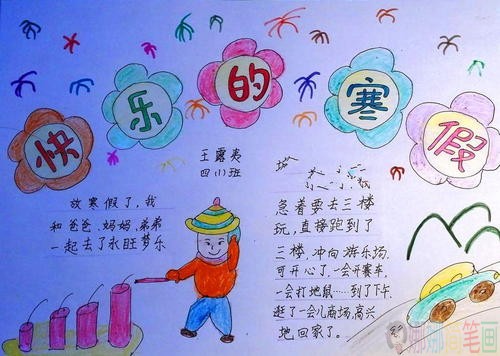 快乐的寒假
王露
四(1)班
放寒假了,我
和爸爸、妈妈、弟弟
一起去了永旺梦乐
城
急着要去三楼
玩,直接跑到了
三楼,冲向游乐场,
可开心了,一会开赛车,
一会打地鼠……到了下午,
逛了一会儿商场,高兴
地回家了。
笔画